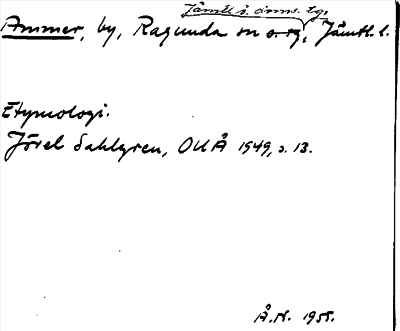 Jämtl:s östra tg,
Ammer, by, Ragunda sn o. tg, Jämtl. l.
Etymologi.
Jöran Sahlgren, OUÅ 1949, s. 13.
Å.N. 1955.